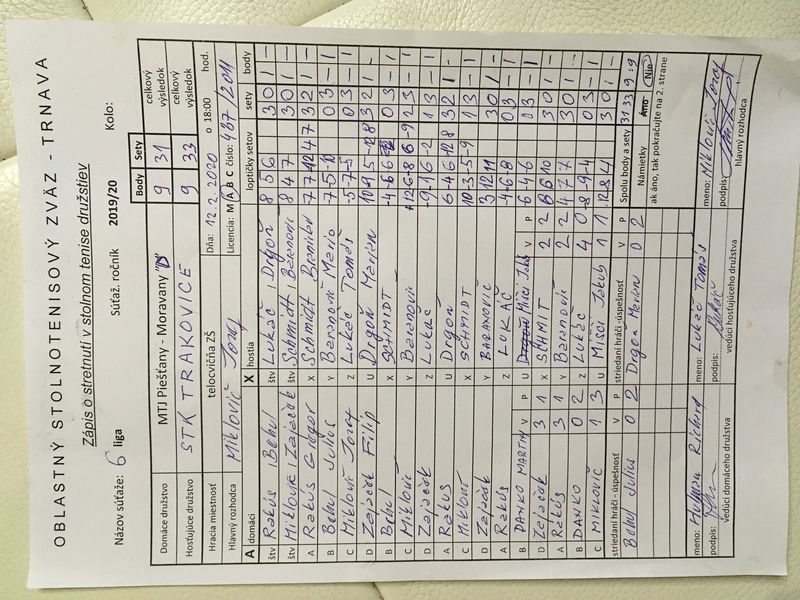 OBLASTNÝ STOLNOTENISOVÝ ZVÄZ - TRNAVA
Zápis o stretnutí v stolnom tenise družstiev
Názov súťaže: 6 liga Súťaž. ročník 2019/20 Kolo:
Body Sety
Domáce družstvo MTJ Piešťany - Moravany "D" 9 31 celkový výsledok
Hosťujúce družstvo STK TRAKOVICE 9 33 celkový výsledok
Hracia miestnosť telocvičňa ZŠ Dňa: 12.2.2020 o 18:00 hod.
Hlavný rozhodca Miklovič Jozef Licencia: M A B C číslo: 487/2011
A domáci X hostia loptičky setov sety body
štv Rakús, Behul štv Lukáč, Drgoň 8 5 6 3 0 1 -
štv Miklovič, Zajačák štv Schmidt, Baranovic 8 4 7 3 0 1 -
A Rakús Gregor X Schmidt Branislav 7 7 -12 4 7 3 2 1 -
B Behul Július Y Baranovic Mario 0 3 - 1
C Miklovič Jozef Z Lukáč Tomáš -5 -7 -5 0 3 - 1
D Zajačák Filip U Drgoň Marian 3 2 1 -
B Behul X SCHMIDT 0 3 - 1
C Miklovič Y Baranovic 2 3 - 1
D Zajačák Z Lukáč 1 3 - 1
A Rakús U Drgoň 3 2 1 -
C Miklovič X SCHMIDT 10 -3 -5 -9 1 3 - 1
D Zajačák Y BARANOVIC 3 12 11 3 0 1 -
A Rakús Z LUKÁČ -4 -6 -8 0 3 - 1
B DANKO MARTIN U Misči Jakub
V P V P
D Zajačák 3 1 X SCHMIT 2 2 8 6 10 3 0 1 -
A Rakús 3 1 Y Baranovic 2 2 4 7 7 3 0 1 -
B DANKO 0 2 Z Lukáč 4 0 -8 -9 -4 0 3 - 1
C MIKLOVIČ 1 3 U Misči Jakub 1 1 12 8 4 3 0 1 -
striedaní hráči - úspešnosť V P striedaní hráči - úspešnosť V P Spolu body a sety 31 33 9 : 9
Behul Július 0 2 Drgoň Marian 0 2 Námietky Áno Nie
ak áno, tak pokračujte na 2. strane
meno: Richard meno: Lukáč Tomáš meno: Miklovič Jozef
podpis: podpis: podpis:
vedúci domáceho družstva vedúci hosťujúceho družstva hlavný rozhodca